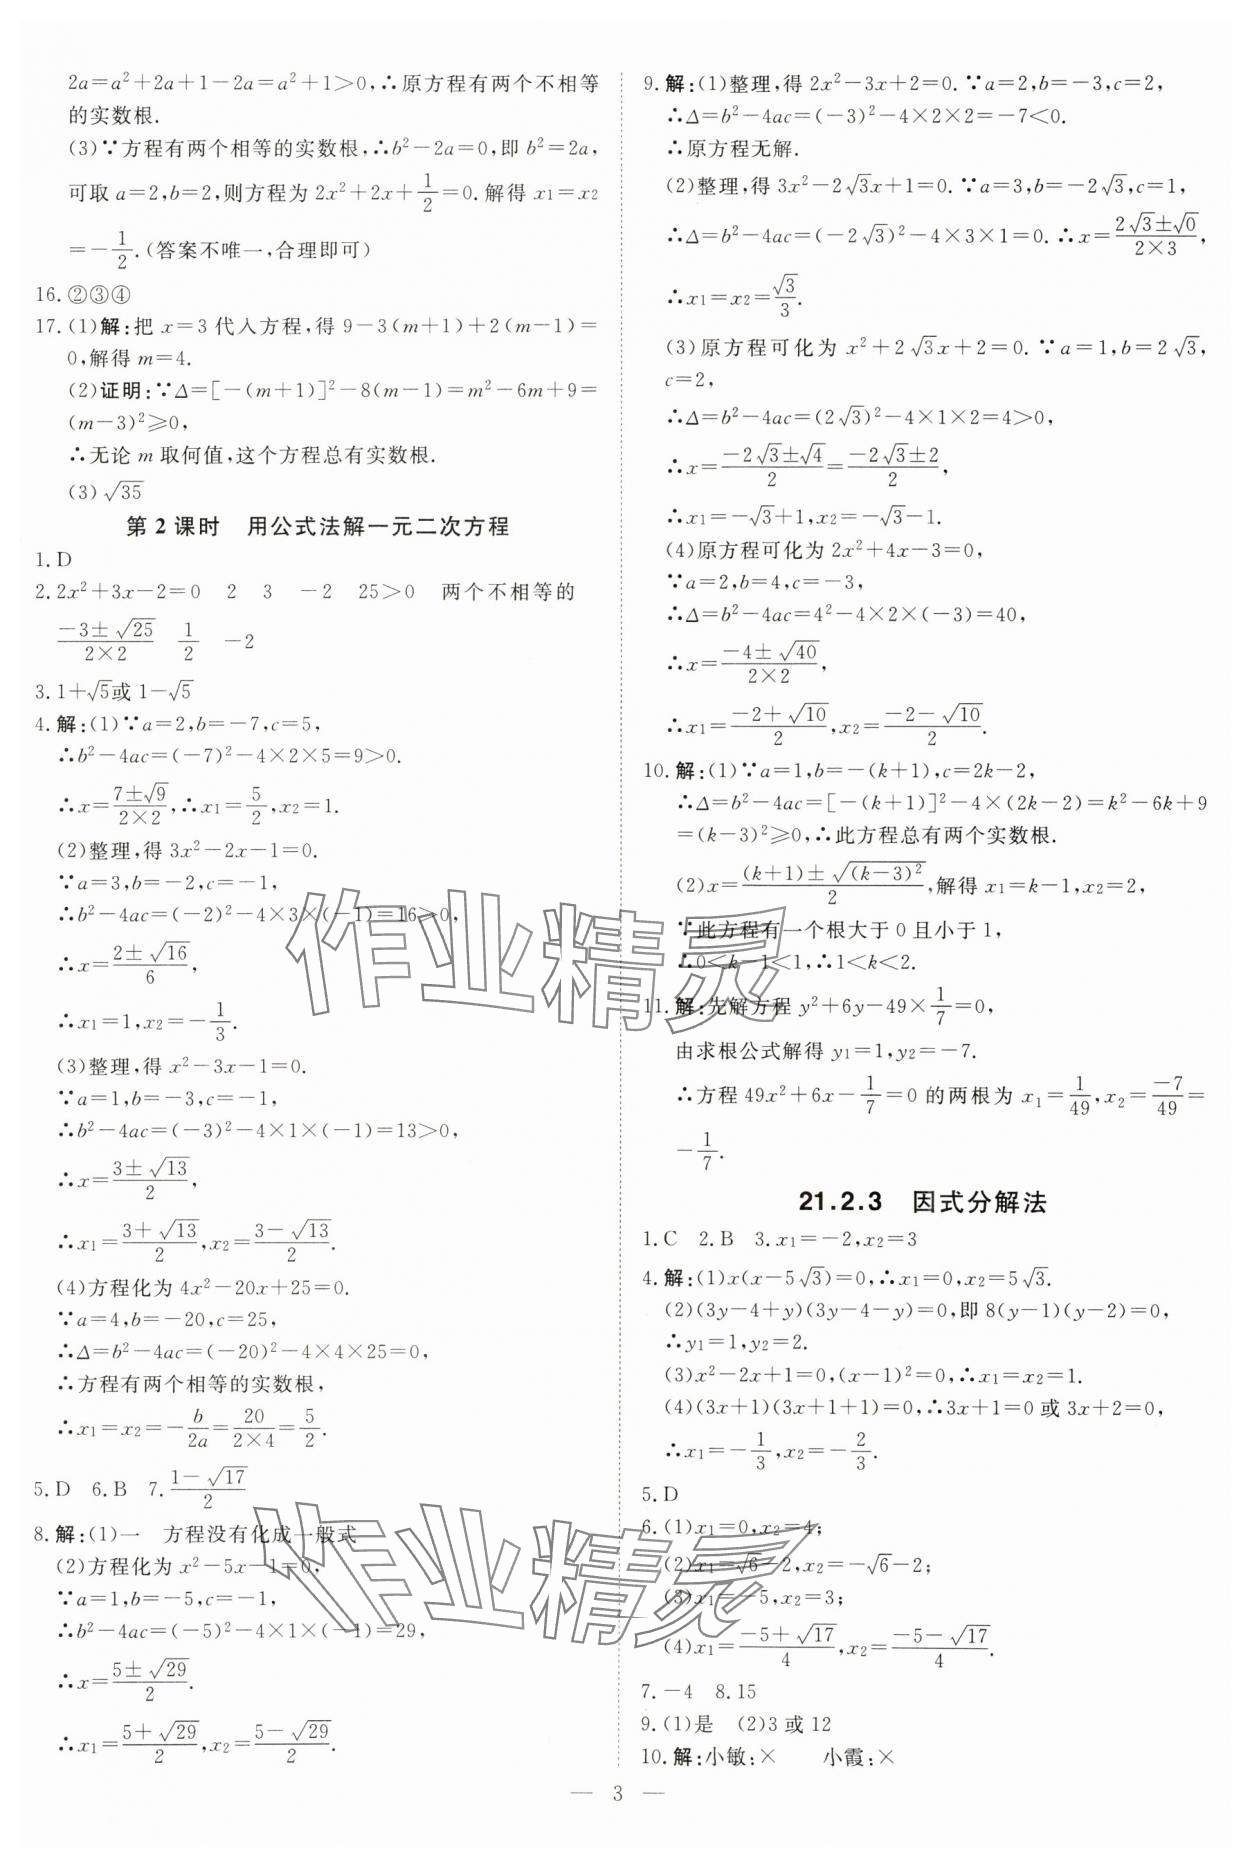 2a=a²+2a+1-2a=a²+1>0,∴原方程有两个不相等
的实数根.
(3)∵方程有两个相等的实数根,∴b²-2a=0,即 b²=2a,
可取 a=2,b=2,则方程为 2x²+2x+1/2=0.解得 x₁=x₂
=-1/2.(答案不唯一,合理即可)
16.②③④
17.(1)解:把 x=3 代入方程,得 9-3(m+1)+2(m-1)=
0,解得 m=4.
(2)证明:∵Δ=[-(m+1)]²-8(m-1)=m²-6m+9=
(m-3)²≥0,
∴无论 m 取何值,这个方程总有实数根.
(3)√35
第 2 课时 用公式法解一元二次方程
1.D
2.2x²+3x-2=0 2 3 -2 25>0 两个不相等的
(-3±√25)/(2×2) 1/2 -2
3.1+√5或 1-√5
4.解:(1)∵a=2,b=-7,c=5,
∴b²-4ac=(-7)²-4×2×5=9>0.
∴x=(7±√9)/(2×2),∴x₁=5/2,x₂=1.
(2)整理,得 3x²-2x-1=0.
∵a=3,b=-2,c=-1,
∴b²-4ac=(-2)²-4×3×(-1)=16>0,
∴x=(2±√16)/6,
∴x₁=1,x₂=-1/3.
(3)整理,得 x²-3x-1=0.
∵a=1,b=-3,c=-1,
∴b²-4ac=(-3)²-4×1×(-1)=13>0,
∴x=(3±√13)/2,
∴x₁=(3+√13)/2,x₂=(3-√13)/2.
(4)方程化为 4x²-20x+25=0.
∵a=4,b=-20,c=25,
∴Δ=b²-4ac=(-20)²-4×4×25=0,
∴方程有两个相等的实数根,
∴x₁=x₂=-b/2a=20/(2×4)=5/2.
5.D 6.B 7.(1-√17)/2
8.解:(1)一 方程没有化成一般式
(2)方程化为 x²-5x-1=0,
∵a=1,b=-5,c=-1,
∴b²-4ac=(-5)²-4×1×(-1)=29,
∴x=(5±√29)/2.
∴x₁=(5+√29)/2,x₂=(5-√29)/2.
9.解:(1)整理,得 2x²-3x+2=0.∵a=2,b=-3,c=2,
∴Δ=b²-4ac=(-3)²-4×2×2=-7<0.
∴原方程无解.
(2)整理,得 3x²-2√3x+1=0.∵a=3,b=-2√3,c=1,
∴Δ=b²-4ac=(-2√3)²-4×3×1=0.∴x=(2√3±√0)/(2×3),
∴x₁=x₂=√3/3.
(3)原方程可化为 x²+2√3x+2=0.∵a=1,b=2√3,
c=2,
∴Δ=b²-4ac=(2√3)²-4×1×2=4>0,
∴x=(-2√3±√4)/2=(-2√3±2)/2,
∴x₁=-√3+1,x₂=-√3-1.
(4)原方程可化为 2x²+4x-3=0,
∵a=2,b=4,c=-3,
∴Δ=b²-4ac=4²-4×2×(-3)=40,
∴x=(-4±√40)/(2×2),
∴x₁=(-2+√10)/2,x₂=(-2-√10)/2.
10.解:(1)∵a=1,b=-(k+1),c=2k-2,
∴Δ=b²-4ac=[-(k+1)]²-4×(2k-2)=k²-6k+9
=(k-3)²≥0,∴此方程总有两个实数根.
(2)x=((k+1)±√(k-3)²)/2,解得 x₁=k-1,x₂=2,
∵此方程有一个根大于 0 且小于 1,
∴0<k-1<1,∴1<k<2.
11.解:先解方程 y²+6y-49×1/7=0,
由求根公式解得 y₁=1,y₂=-7.
∴方程 49x²+6x-1/7=0 的两根为 x₁=1/49,x₂=-7/49=
-1/7.
21.2.3 因式分解法
1.C 2.B 3.x₁=-2,x₂=3
4.解:(1)x(x-5√3)=0,∴x₁=0,x₂=5√3.
(2)(3y-4+y)(3y-4-y)=0,即 8(y-1)(y-2)=0,
∴y₁=1,y₂=2.
(3)x²-2x+1=0,(x-1)²=0,∴x₁=x₂=1.
(4)(3x+1)(3x+1+1)=0,∴3x+1=0 或 3x+2=0,
∴x₁=-1/3,x₂=-2/3.
5.D
6.(1)x₁=0,x₂=4;
(2)x₁=√6-2,x₂=-√6-2;
(3)x₁=-5,x₂=3;
(4)x₁=(-5+√17)/4,x₂=(-5-√17)/4.
7.-4 8.15
9.(1)是 (2)3 或 12
10.解:小敏:× 小霞:×
— 3 —
作业精灵
作业精灵